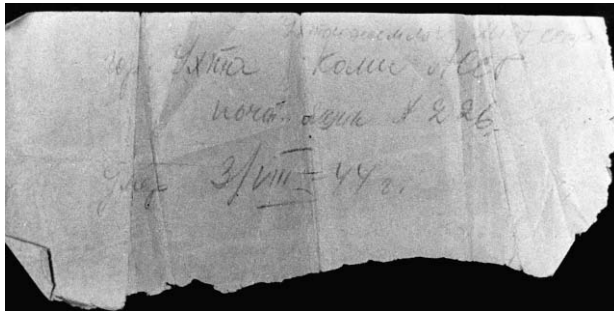 гор. Ухта Коми АССР
почт. ящик № 226.
Умер 3/VIII - 44 г.